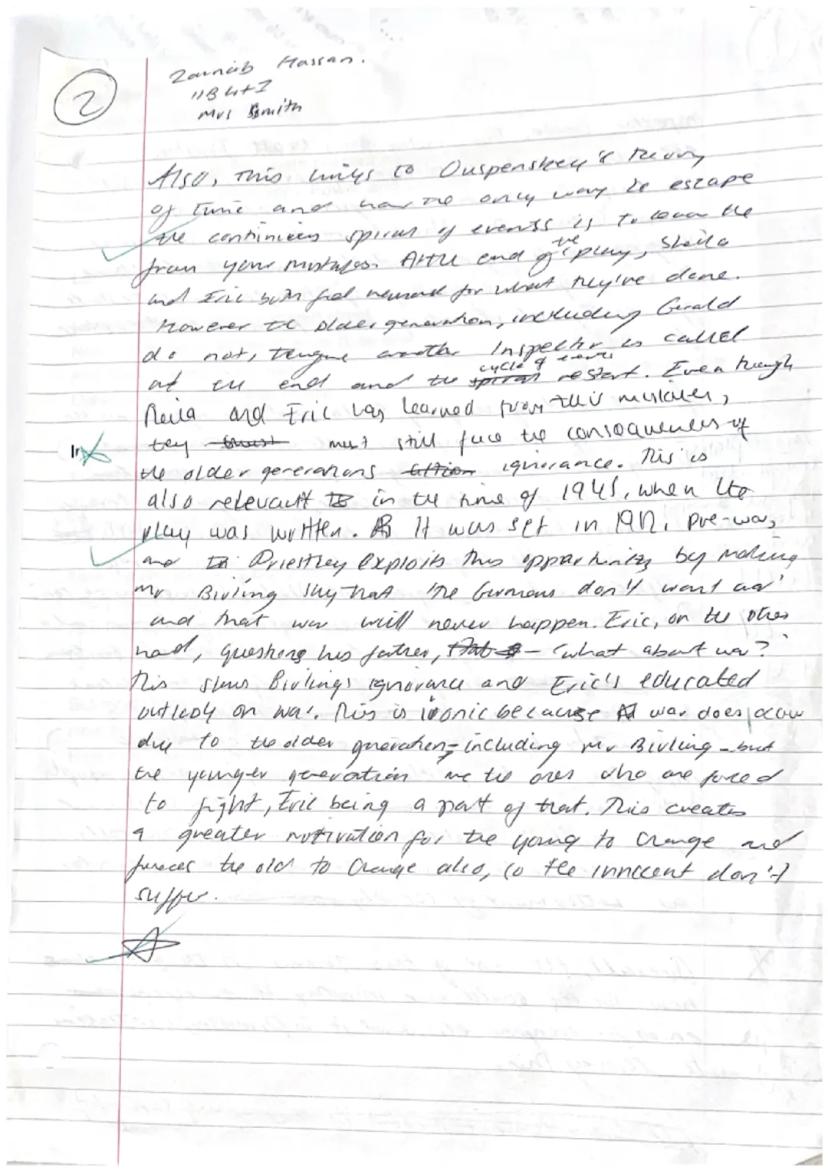 2
Zainab Hassan.
11B4+2
Mrs Smith
Also, this links to Ouspenskey's theory
of time and how the only way to escape
the continious spiral of events is to learn the
from your mistakes. At the end of the play, Sheila
and Eric both feel remorse for what they've done.
However the older generation, including Gerald
do not, another Inspector is called
at the end and the spiral cycle of events restart. Even though
Sheila and Eric has learned from this mistakes,
they must still face the consequences of
the older generations ignorance. This is
also relevant to in the time of 1945, when the
play was written. It was set in 1912, pre-war,
and Priestley exploits this opportunity by making
Mr Birling say that 'the Germans don't want war'
and that war will never happen. Eric, on the other
hand, questions his father, - 'what about war?'
This shows Birlings ignorance and Eric's educated
outlook on war. This is ironic because war does occur
due to the older generation, including Mr Birling - but
the younger generation are the ones who are forced
to fight, Eric being a part of that. This creates
a greater motivation for the young to change and
forces the old to change also, so the innocent don't
suffer.